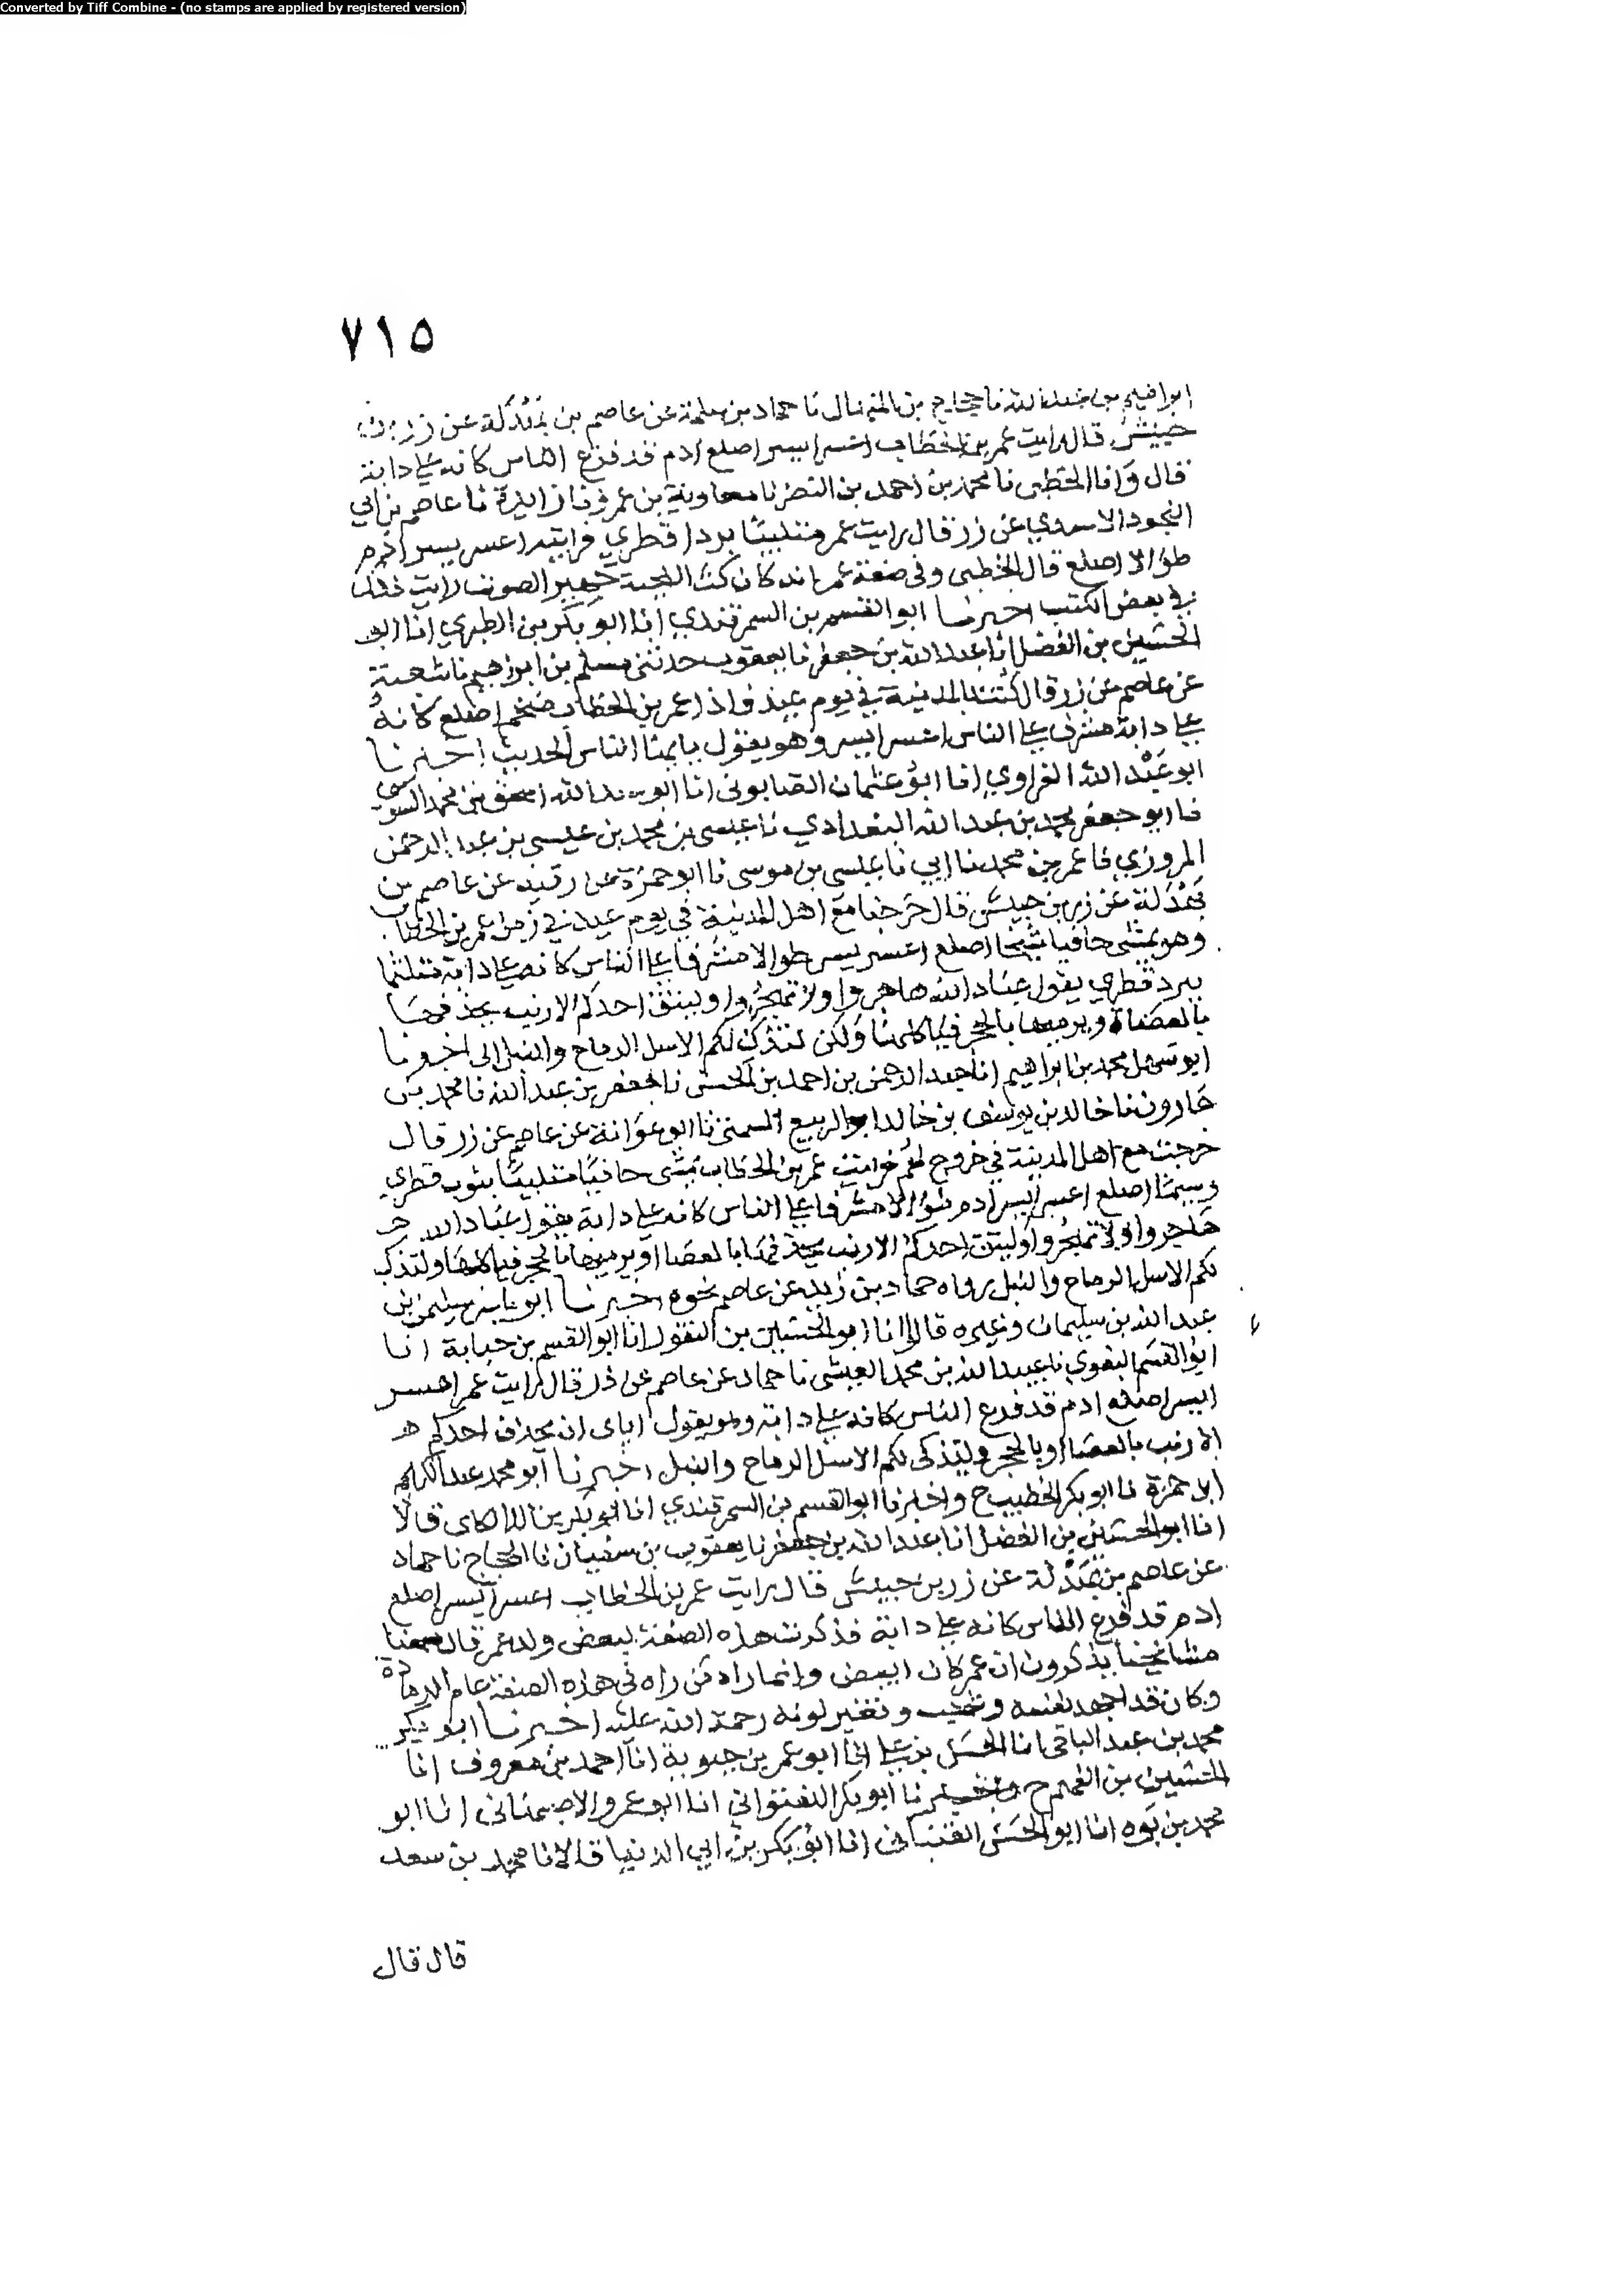 Converted by Tiff Combine - (no stamps are applied by registered version)
٧١٥
ابراهيم بن عبد الله نا حجاج بن المنهال نا حماد بن سلمة عن عاصم بن بهدلة عن زر بن
حبيش قال رايت عمر بن الخطاب اعسر ايسر اصلع ادم قد فرع الناس كانه على دابة
قال وانا الخطبى نا محمد بن احمد بن النضر نا معاوية بن عمرو نا زايدة نا عاصم بن ابي
النجود الاسدي عن زر قال رايت عمر متلببا بردا قطري فرايته اعسر يسر ادم
طوالا اصلع قال الخطبى وفى صفة عمر انه كان كث اللحية جهير الصوت رايت ذلك
في بعض الكتب اخبرنا ابو القسم بن السمرقندي انا ابو بكر بن الطبري انا ابو
الحسين بن الفضل انا عبد الله بن جعفر نا يعقوب حدثنى مسلم بن ابراهيم نا شعبة
عن عاصم عن زر قال كنت بالمدينة في يوم عيد فاذا عمر بن الخطاب ضخم اصلع كانه
على دابة مشرف على الناس اعسر ايسر وهو يقول يا ايها الناس الحديث اخبرنا
ابو عبد الله الفراوي انا ابو عثمان الصابونى انا ابو عبد الله اسحق بن محمد السوسى
نا ابو جعفر محمد بن عبد الله البغدادي نا عيسى بن محمد بن عيسى بن عبد الرحمن
المروزي نا عمر بن محمد نا ابي نا عيسى بن موسى نا ابو حمزة عن رقبه عن عاصم بن
بهدلة عن زر بن حبيش قال خرجنا مع اهل المدينة في يوم عيد في زمن عمر بن الخطاب
وهو يمشى حافيا شيخا اصلع اعسر يسر طوالا مشرفا على الناس كانه على دابة متلثما
ببرد قطري يقول عباد الله هاجروا ولا تهجروا وليتق احدكم الارنب يحذفها
بالعصاة ويرميها بالحجر فياكلها ولكن لتذك لكم الاسل الرماح والنبل الى اخبرنا
ابو سهل محمد بن ابراهيم انا عبد الرحمن بن احمد بن الحسن نا جعفر بن عبد الله نا محمد بن
هارون نا خالد بن يوسف بن خالد ابو الربيع السمتى نا ابو عوانة عن عاصم عن زر قال
خرجت مع اهل المدينة في خروج لهم فرايت عمر بن الخطاب يمشى حافيا متلببا بثوب قطري
اصلع اعسر ايسر ادم طوالا مشرفا على الناس كانه على دابة يقول عباد الله
هاجروا ولا تهجروا وليتق احدكم الارنب يحذفها بالعصا او يرميها بالحجر فياكلها ولتذك
لكم الاسل الرماح والنبل رواه حماد بن زيد عن عاصم نحوه اخبرنا
عبد الله بن سليمان وغيره قالوا انا ابو الحسين بن النقور انا ابو القسم بن حبابة انا
ابو القسم البغوي نا عبيد الله بن محمد العيشى نا حماد عن عاصم عن زر قال رايت عمر اعسر
ايسر اصلع ادم قد فرع الناس كانه على دابة وهو يقول اياى ان يحذف احدكم
الارنب بالعصا او بالحجر وليذكى لكم الاسل الرماح والنبل اخبرنا ابو محمد عبد الكريم
ابن حمزة نا ابو بكر الخطيب ح واخبرنا ابو القسم بن السمرقندي انا ابو بكر بن اللالكاى قالا
انا ابو الحسين بن الفضل انا عبد الله بن جعفر نا يعقوب بن سفيان نا الحجاج نا حماد
عن عاصم بن بهدلة عن زر بن حبيش قال رايت عمر بن الخطاب اعسر ايسر اصلع
ادم قد فرع الناس كانه على دابة فذكرت هذه الصفة لبعض ولد عمر قال سمعنا
مشايخنا يذكرون ان عمر كان ابيض وانما راه من راه في هذه الصفة عام الرمادة
وكان قد اجهد نفسه وتغير لونه رحمة الله عليه اخبرنا ابو بكر
محمد بن عبد الباقى انا الحسن بن علي انا ابو عمر بن حيوية انا احمد بن معروف انا
الحسين بن الفهم ح واخبرنا ابو بكر اللفتوانى انا ابو عمرو الاصبهانى انا ابو
محمد بن يوه انا ابو الحسن اللنبانى انا ابو بكر بن ابي الدنيا قالا نا محمد بن سعد
قال قال